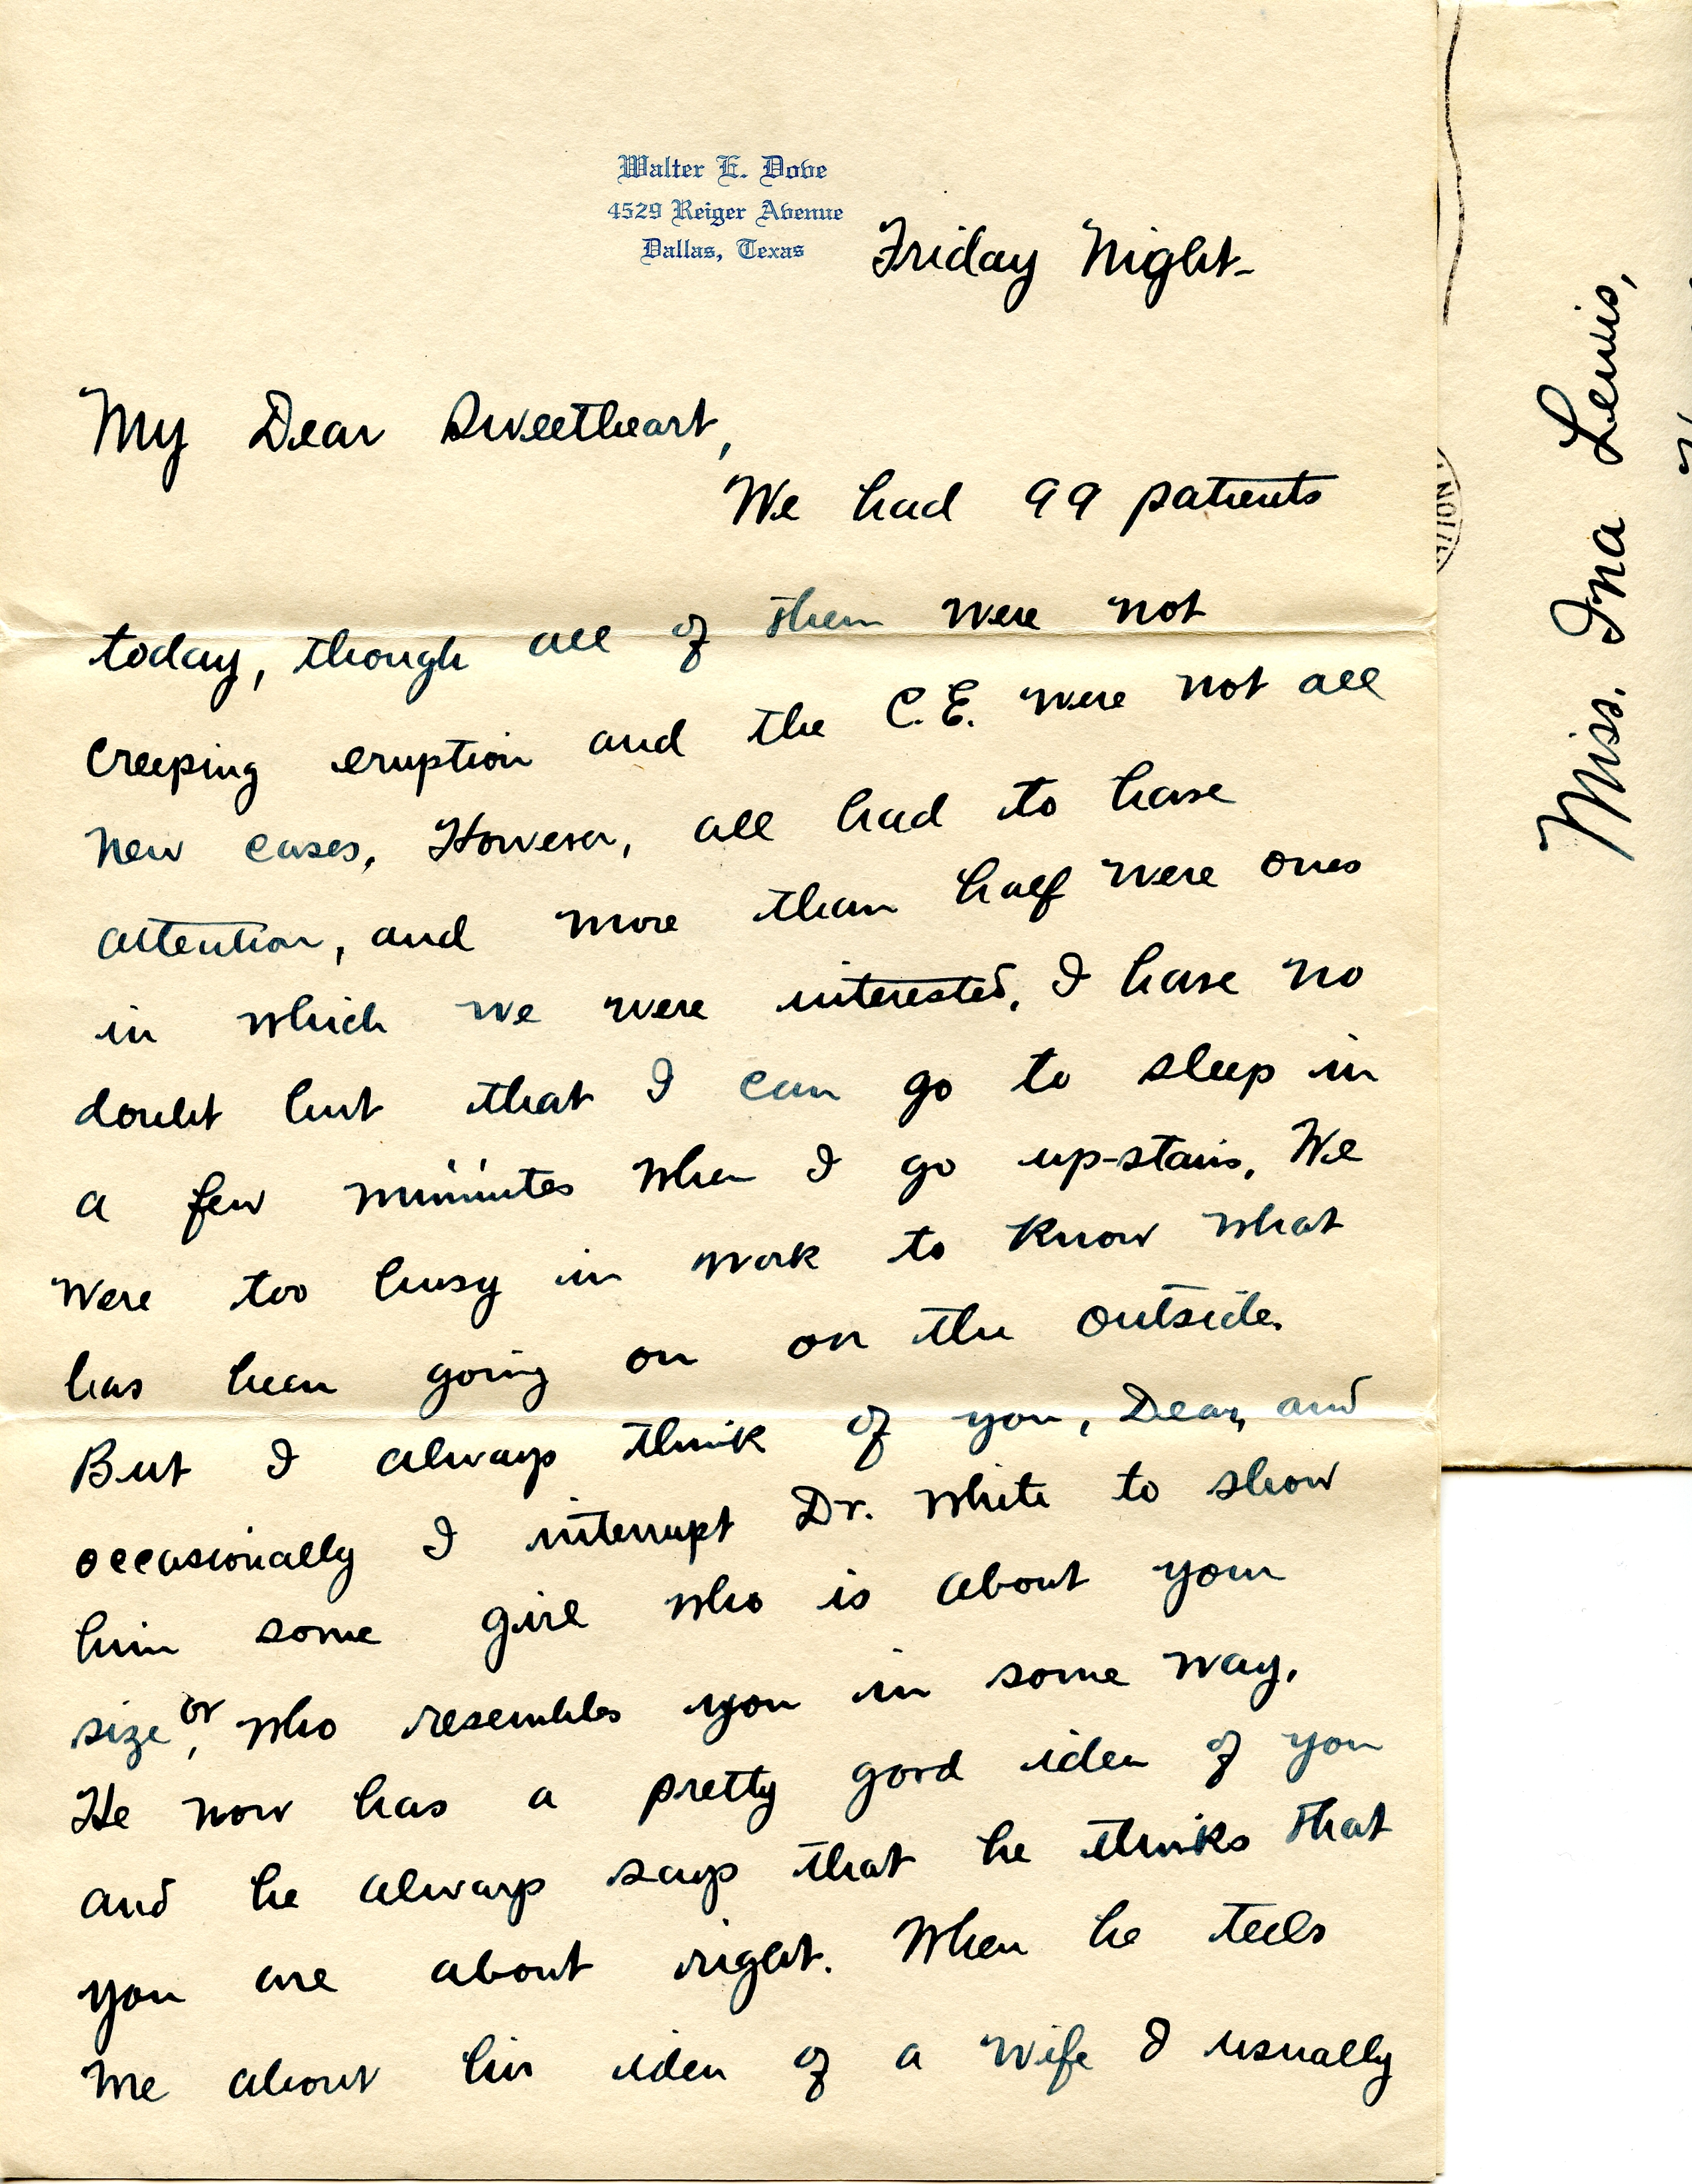 Walter E. Dove
4529 Reiger Avenue
Dallas, Texas
Friday Night-
My Dear Sweetheart,
We had 99 patients
today, though all of them were not
creeping eruption and the C.E. were not all
new cases. However, all had to have
attention, and more than half were ones
in which we were interested. I have no
doubt but that I can go to sleep in
a few minutes when I go up-stairs. We
were too busy in work to know what
has been going on on the outside.
But I always think of you, Dear, and
occasionally I interrupt Dr. White to show
him some girl who is about your
size, or who resembles you in some way.
He now has a pretty good idea of you
and he always says that he thinks that
you are about right. When he tells
me about his idea of a wife I usually
Miss. Ina Lewis,